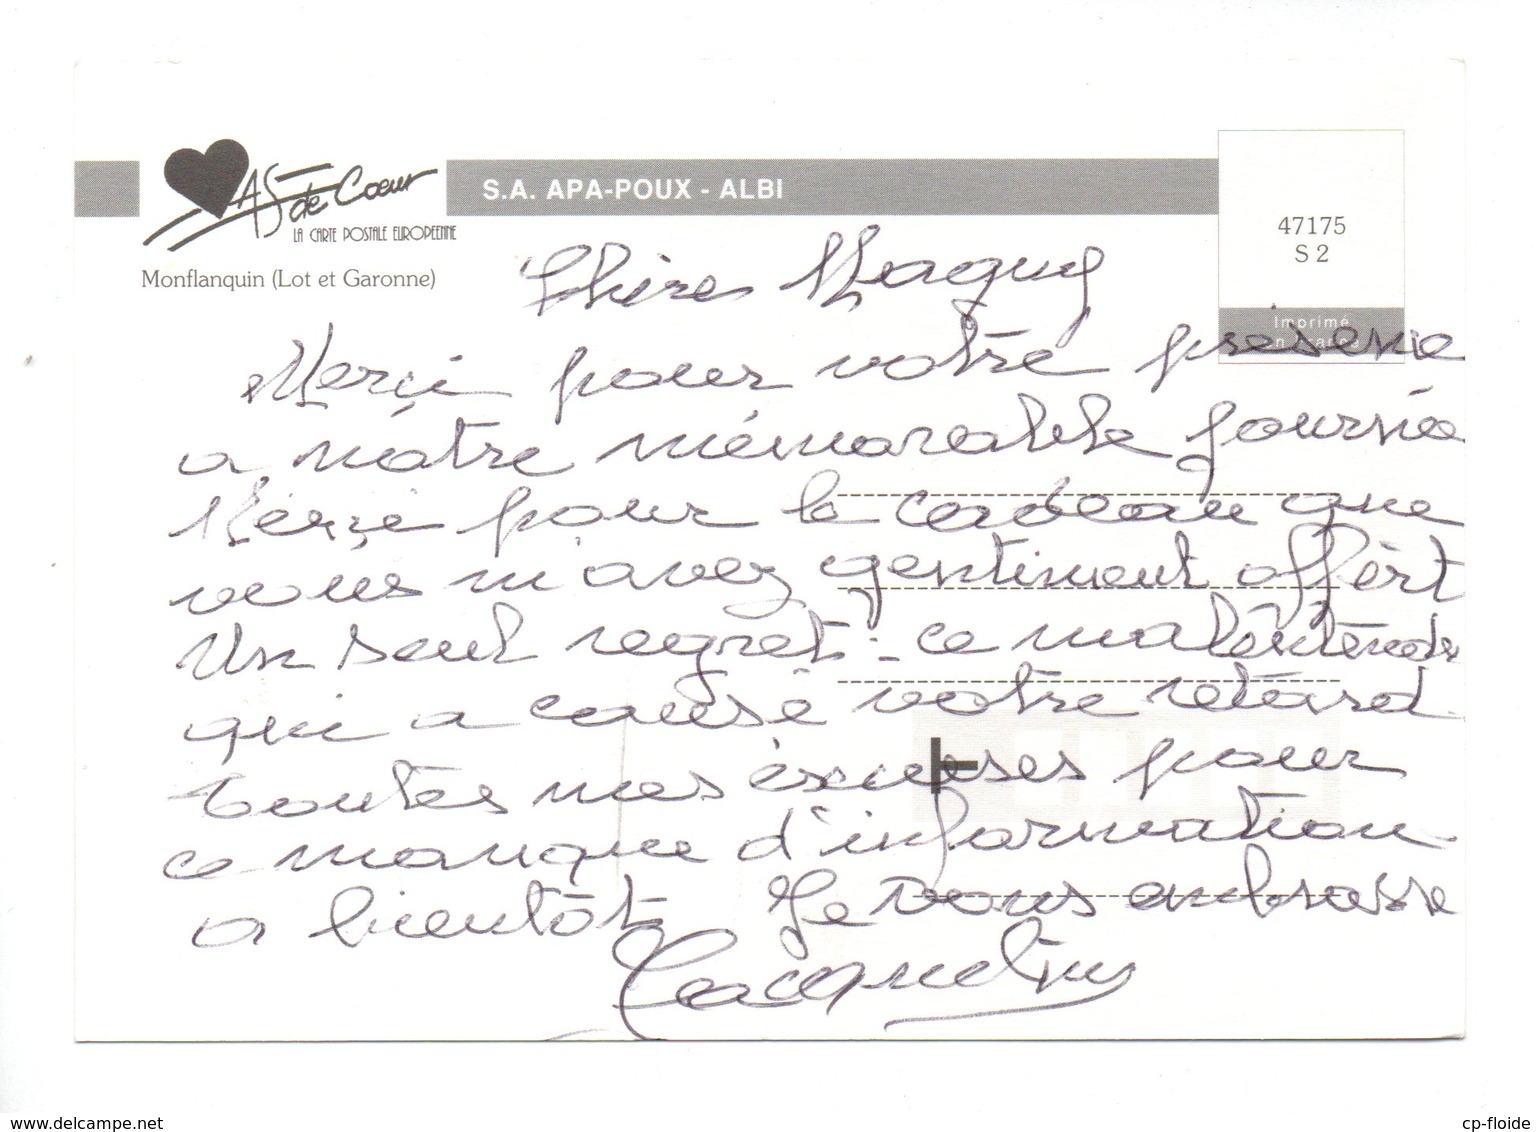 AS de Coeur
LA CARTE POSTALE EUROPEENNE
S.A. APA-POUX - ALBI
47175
S 2
Monflanquin (Lot et Garonne)
Imprimé
Chère Maguy
Merci pour votre présence
a notre mémorable journée
Merci pour le cadeau que
vous m'avez gentiment offert
Un seul regret - ce malentendu
qui a causé votre retard
toutes mes excuses pour
ce manque d'information
a bientôt Je vous embrasse
Jacqueline
www.delcampe.net
cp-floide